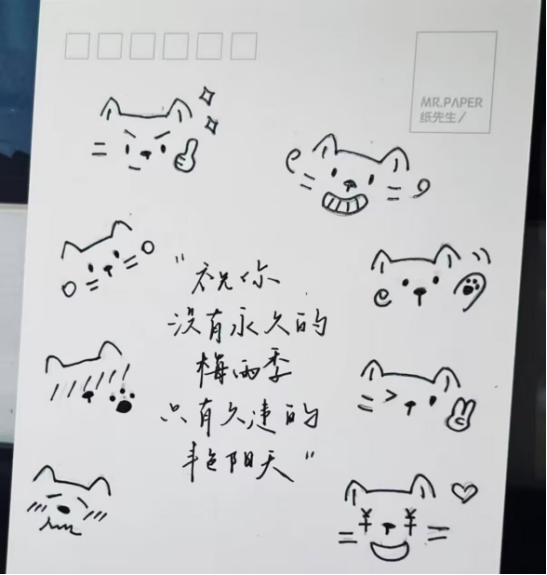 MR.PAPER
纸先生/
"祝你
没有永久的
梅雨季
只有久违的
艳阳天"
¥ ¥